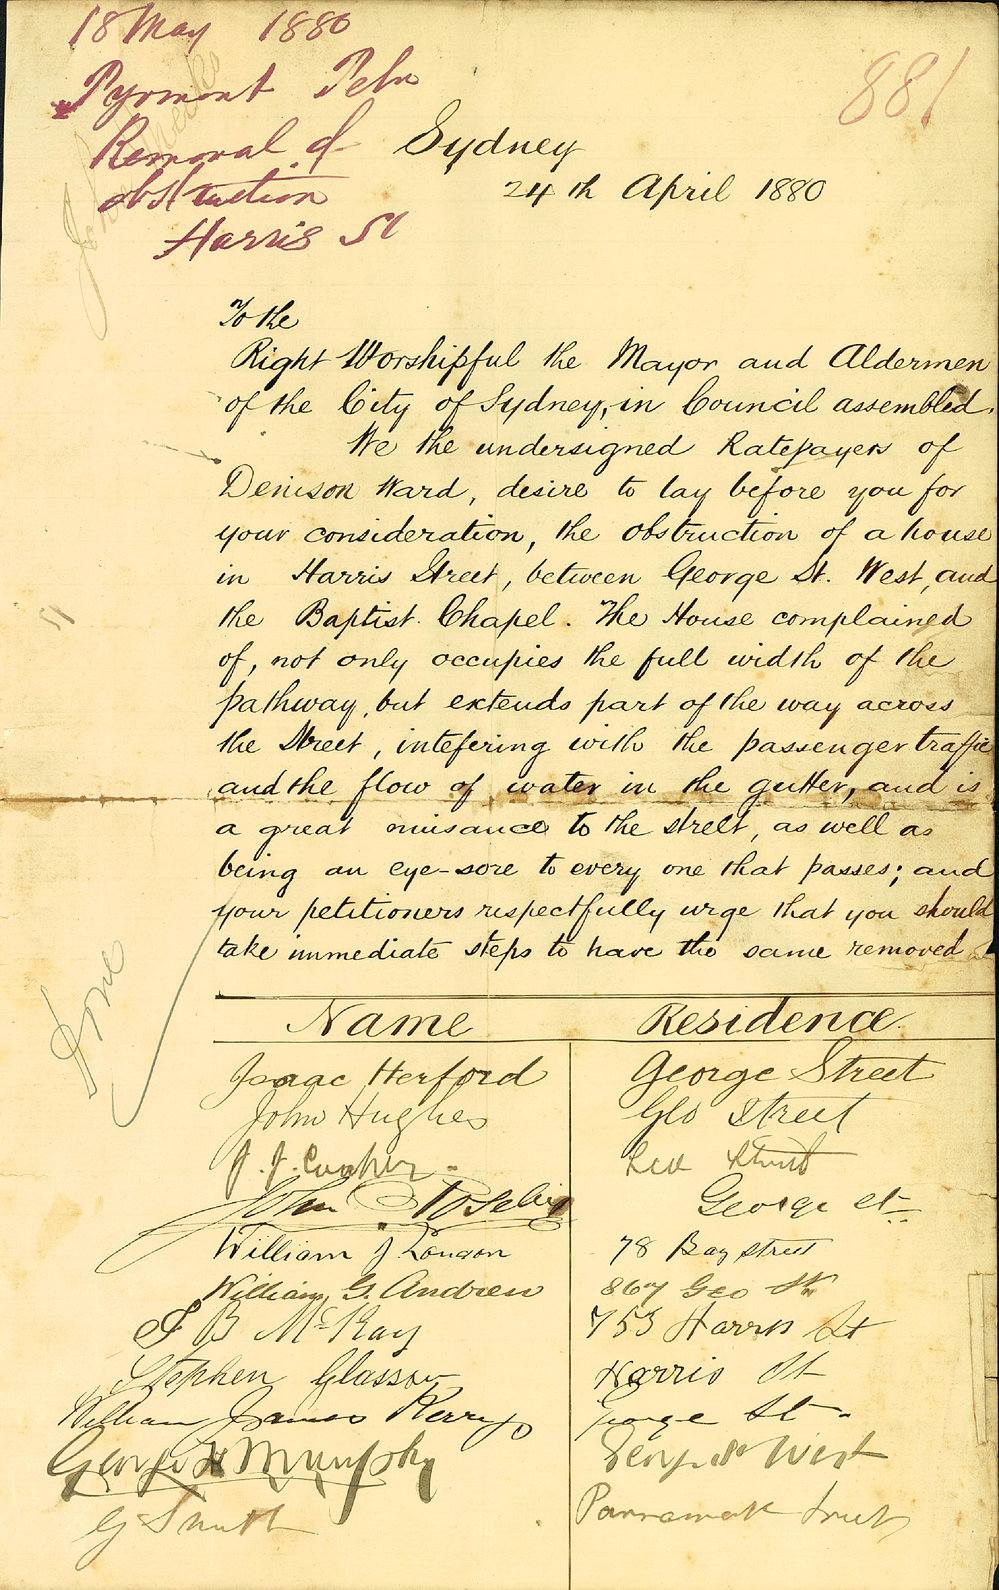 18 May 1880
Pyrmont Petn
Removal of
obstruction
Harris St
881
Sydney
24th April 1880
To the
Right Worshipful the Mayor and Aldermen
of the City of Sydney, in Council assembled.
We the undersigned Ratepayers of
Denison Ward, desire to lay before you for
your consideration, the obstruction of a house
in Harris Street, between George St. West, and
the Baptist Chapel. The House complained
of, not only occupies the full width of the
pathway, but extends part of the way across
the Street, intefering with the passenger traffic
and the flow of water in the gutter, and is
a great nuisance to the street, as well as
being an eye-sore to every one that passes; and
your petitioners respectfully urge that you should
take immediate steps to have the same removed
Name Residence
Isaac Herford George Street
John Hughes Geo Street
J. J. Geo Street
John George St
William J London 78 Bay Street
William G. Andrew 867 Geo St
McKay 753 Harris St
Stephen Glasson Harris St
William James Perry George St
George H Murphy George St West
G Smith Parramatta Street